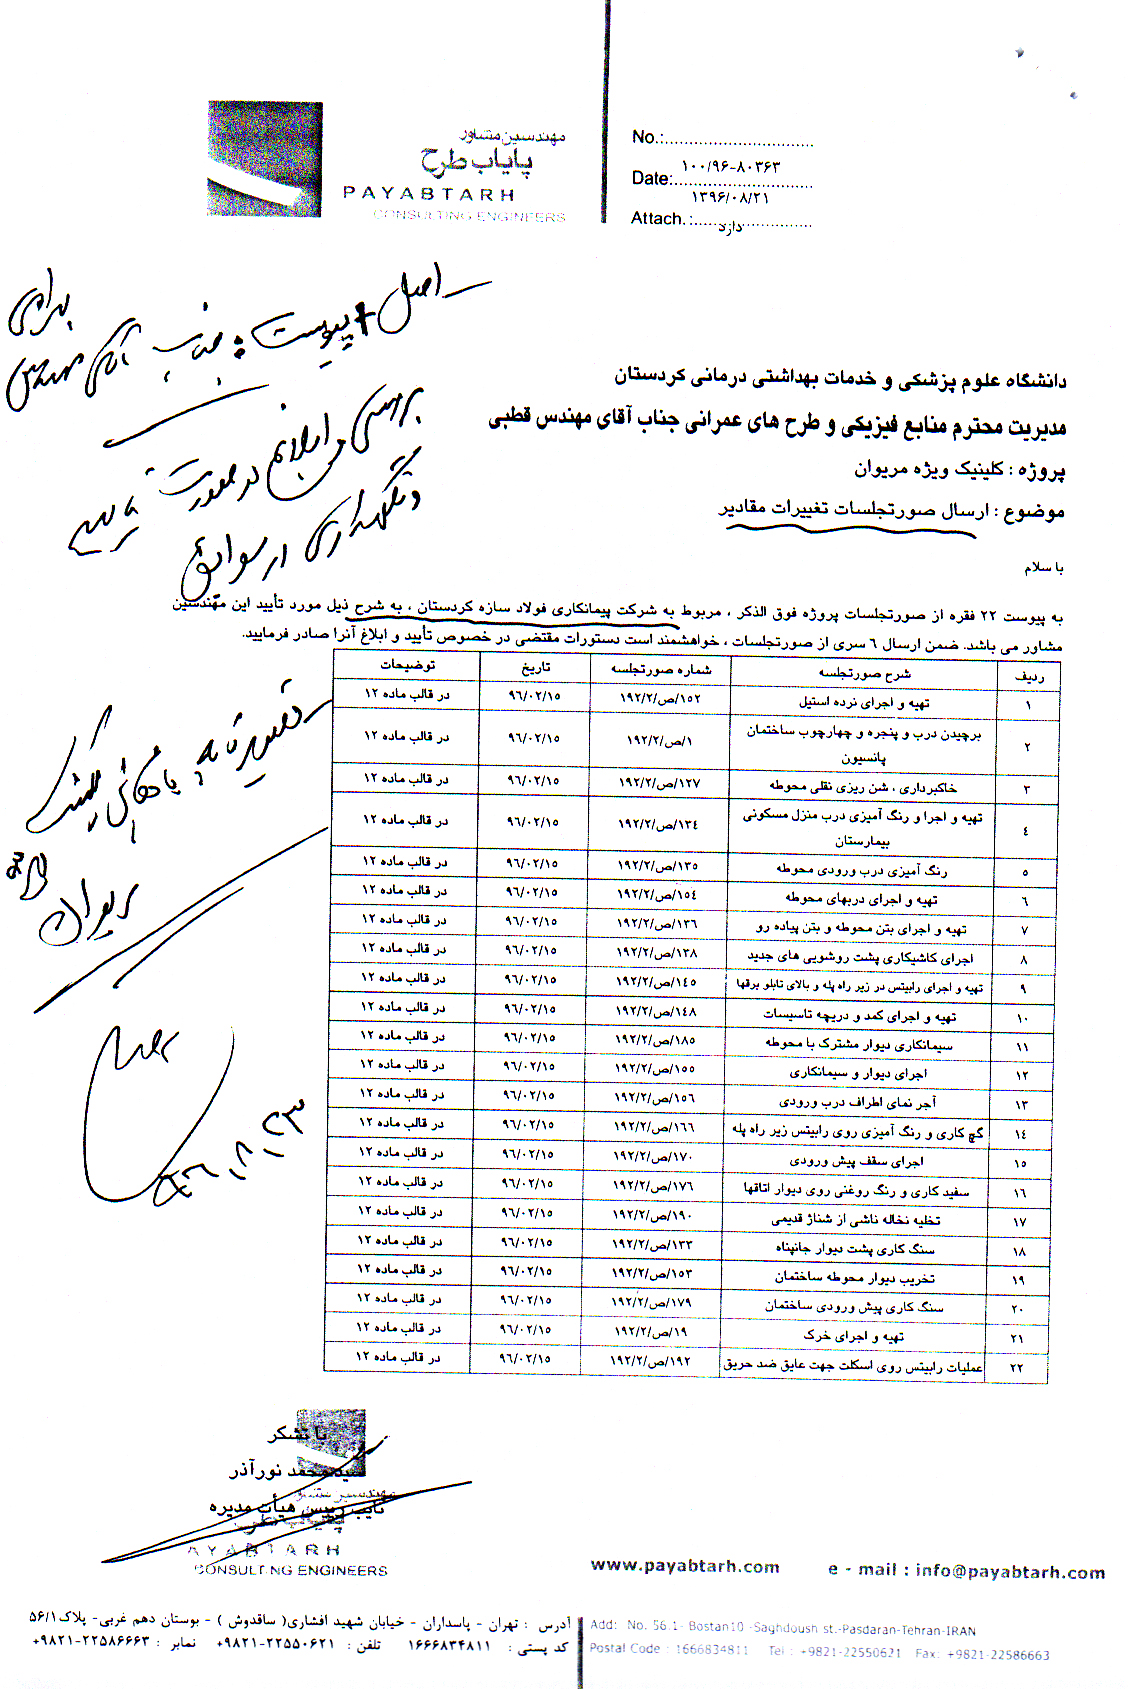 مهندسین مشاور
پایاب طرح
PAYABTARH
CONSULTING ENGINEERS
No.:.............................. ۱۰۰/۹۶-۸۰۳۶۳
Date:............................ ۱۳۹۶/۰۸/۲۱
Attach.:......دارد...............
اصل + پیوست : جناب آقای مهندس
بررسی و ابلاغ در صورت
و نگهداری در سوابق
دانشگاه علوم پزشکی و خدمات بهداشتی درمانی کردستان
مدیریت محترم منابع فیزیکی و طرح های عمرانی جناب آقای مهندس قطبی
پروژه : کلینیک ویژه مریوان
موضوع : ارسال صورتجلسات تغییرات مقادیر
با سلام
به پیوست ۲۲ فقره از صورتجلسات پروژه فوق الذکر ، مربوط به شرکت پیمانکاری فولاد سازه کردستان ، به شرح ذیل مورد تأیید این مهندسین
مشاور می باشد. ضمن ارسال ٦ سری از صورتجلسات ، خواهشمند است دستورات مقتضی در خصوص تأیید و ابلاغ آنرا صادر فرمایید.
ردیف شرح صورتجلسه شماره صورتجلسه تاریخ توضیحات
۱ تهیه و اجرای نرده استیل ۱۹۲/۲/ص/۱۵۲ ۹٦/۰۲/۱۵ در قالب ماده ۱۲
۲ برچیدن درب و پنجره و چهارچوب ساختمان پانسیون ۱۹۲/۲/ص/۱ ۹٦/۰۲/۱۵ در قالب ماده ۱۲
۳ خاکبرداری ، شن ریزی نقلی محوطه ۱۹۲/۲/ص/۱۲۷ ۹٦/۰۲/۱۵ در قالب ماده ۱۲
٤ تهیه و اجرا و رنگ آمیزی درب منزل مسکونی بیمارستان ۱۹۲/۲/ص/۱۳٤ ۹٦/۰۲/۱۵ در قالب ماده ۱۲
۵ رنگ آمیزی درب ورودی محوطه ۱۹۲/۲/ص/۱۳۵ ۹٦/۰۲/۱۵ در قالب ماده ۱۲
٦ تهیه و اجرای دربهای محوطه ۱۹۲/۲/ص/۱۵٤ ۹٦/۰۲/۱۵ در قالب ماده ۱۲
۷ تهیه و اجرای بتن محوطه و بتن پیاده رو ۱۹۲/۲/ص/۱۳٦ ۹٦/۰۲/۱۵ در قالب ماده ۱۲
۸ اجرای کاشیکاری پشت روشویی های جدید ۱۹۲/۲/ص/۱۳۸ ۹٦/۰۲/۱۵ در قالب ماده ۱۲
۹ تهیه و اجرای رابیتس در زیر راه پله و بالای تابلو برقها ۱۹۲/۲/ص/۱٤۵ ۹٦/۰۲/۱۵ در قالب ماده ۱۲
۱۰ تهیه و اجرای کمد و دریچه تاسیسات ۱۹۲/۲/ص/۱٤۸ ۹٦/۰۲/۱۵ در قالب ماده ۱۲
۱۱ سیمانکاری دیوار مشترک با محوطه ۱۹۲/۲/ص/۱۸۵ ۹٦/۰۲/۱۵ در قالب ماده ۱۲
۱۲ اجرای دیوار و سیمانکاری ۱۹۲/۲/ص/۱۵۵ ۹٦/۰۲/۱۵ در قالب ماده ۱۲
۱۳ آجر نمای اطراف درب ورودی ۱۹۲/۲/ص/۱۵٦ ۹٦/۰۲/۱۵ در قالب ماده ۱۲
۱٤ گچ کاری و رنگ آمیزی روی رابیتس زیر راه پله ۱۹۲/۲/ص/۱٦٦ ۹٦/۰۲/۱۵ در قالب ماده ۱۲
۱۵ اجرای سقف پیش ورودی ۱۹۲/۲/ص/۱۷۰ ۹٦/۰۲/۱۵ در قالب ماده ۱۲
۱٦ سفید کاری و رنگ روغنی روی دیوار اتاقها ۱۹۲/۲/ص/۱۷٦ ۹٦/۰۲/۱۵ در قالب ماده ۱۲
۱۷ تخلیه نخاله ناشی از شناژ قدیمی ۱۹۲/۲/ص/۱۹۰ ۹٦/۰۲/۱۵ در قالب ماده ۱۲
۱۸ سنگ کاری پشت دیوار جانپناه ۱۹۲/۲/ص/۱۳۳ ۹٦/۰۲/۱۵ در قالب ماده ۱۲
۱۹ تخریب دیوار محوطه ساختمان ۱۹۲/۲/ص/۱۵۳ ۹٦/۰۲/۱۵ در قالب ماده ۱۲
۲۰ سنگ کاری پیش ورودی ساختمان ۱۹۲/۲/ص/۱۷۹ ۹٦/۰۲/۱۵ در قالب ماده ۱۲
۲۱ تهیه و اجرای خرک ۱۹۲/۲/ص/۱۹ ۹٦/۰۲/۱۵ در قالب ماده ۱۲
۲۲ عملیات رابیتس روی اسکلت جهت عایق ضد حریق ۱۹۲/۲/ص/۱۹۲ ۹٦/۰۲/۱۵ در قالب ماده ۱۲
۹۶/۸/۲۳
با تشکر
سید محمد نورآذر
نایب رییس هیأت مدیره
مهندسین مشاور
پایاب طرح
PAYABTARH
CONSULTING ENGINEERS
www.payabtarh.com e - mail : info@payabtarh.com
آدرس : تهران - پاسداران - خیابان شهید افشاری( ساقدوش ) - بوستان دهم غربی- پلاک۵۶/۱
کد پستی : ۱۶۶۶۸۳۴۸۱۱ تلفن : ۲۲۵۵۰۶۲۱-۹۸۲۱+ نمابر : ۲۲۵۸۶۶۶۳-۹۸۲۱+
Add: No. 56.1- Bostan10 -Saghdoush st.-Pasdaran-Tehran-IRAN
Postal Code : 1666834811 Tel : +9821-22550621 Fax: +9821-22586663